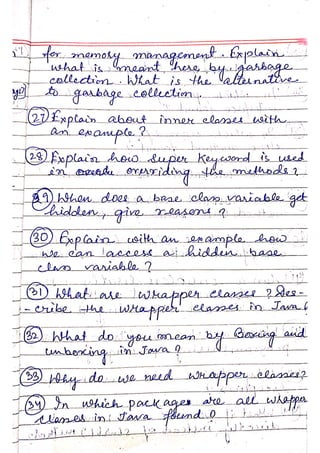 for memory management. Explain
what is meant here by garbage
collection. What is the alternative
to garbage collection.
27 Explain about inner classes with
an example?
28 Explain how super keyword is used
in overriding the methods?
29 When does a base class variable get
hidden, give reasons?
30 Explain with an example how
we can access a hidden base
class variable?
31 What are wrapper classes? Des-
-cribe the wrapper classes in Java
32 What do you mean by Boxing and
unboxing in Java?
33 Why do we need wrapper classes?
34 In which packages are all wrapper
classes in Java found?